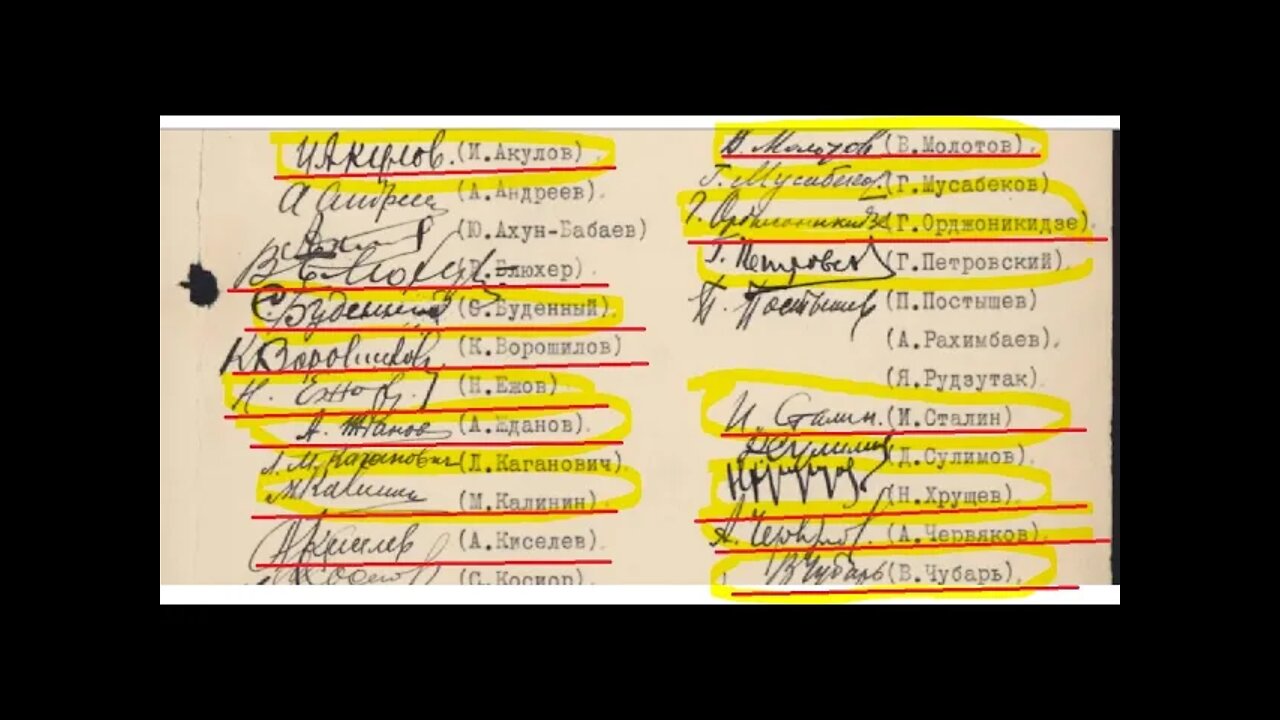 И Акулов. (И. Акулов),
А Андреев (А. Андреев),
(Ю. Ахун-Бабаев)
В Блюхер (В. Блюхер),
С. Буденный (С. Буденный),
К Ворошилов (К. Ворошилов)
Н. Ежов. (Н. Ежов)
А. Жданов (А. Жданов),
Л. М. Каганович (Л. Каганович),
М Калинин (М. Калинин)
А Киселев (А. Киселев),
(С. Косиор),
В. Молотов (В. Молотов),
Г. Мусабеков (Г. Мусабеков)
Г. Орджоникидзе (Г. Орджоникидзе),
Г. Петровский (Г. Петровский),
П. Постышев (П. Постышев)
(А. Рахимбаев),
(Я. Рудзутак),
И. Сталин. (И. Сталин)
Д Сулимов (Д. Сулимов),
Н Хрущев (Н. Хрущев),
А. Червяков. (А. Червяков),
В Чубарь (В. Чубарь),